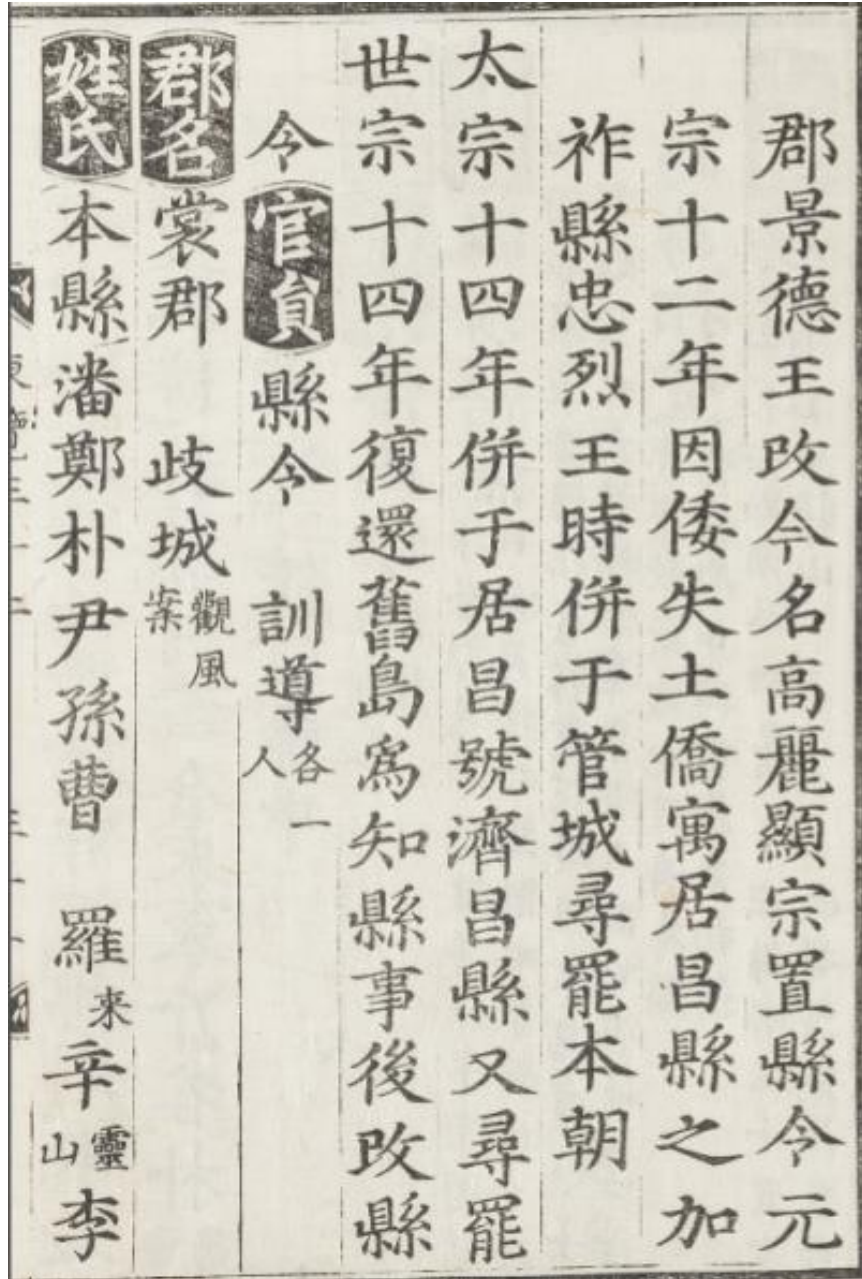 郡景德王改今名高麗顯宗置縣令元
宗十二年因倭失土僑寓居昌縣之加
祚縣忠烈王時併于管城尋罷本朝
太宗十四年併于居昌號濟昌縣又尋罷
世宗十四年復還舊島爲知縣事後改縣
令 官貟 縣令 訓導 各一人
郡名 裳郡 歧城 觀風案
姓氏 本縣潘鄭朴尹孫曹 羅 来 辛 靈山 李